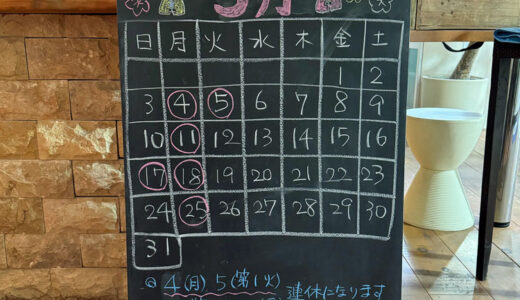 月
日 月 火 水 木 金 土
1 2
3 4 5 6 7 8 9
10 11 12 13 14 15 16
17 18 19 20 21 22 23
24 25 26 27 28 29 30
31
◎ 4(月) 5(第1火)
連休になります